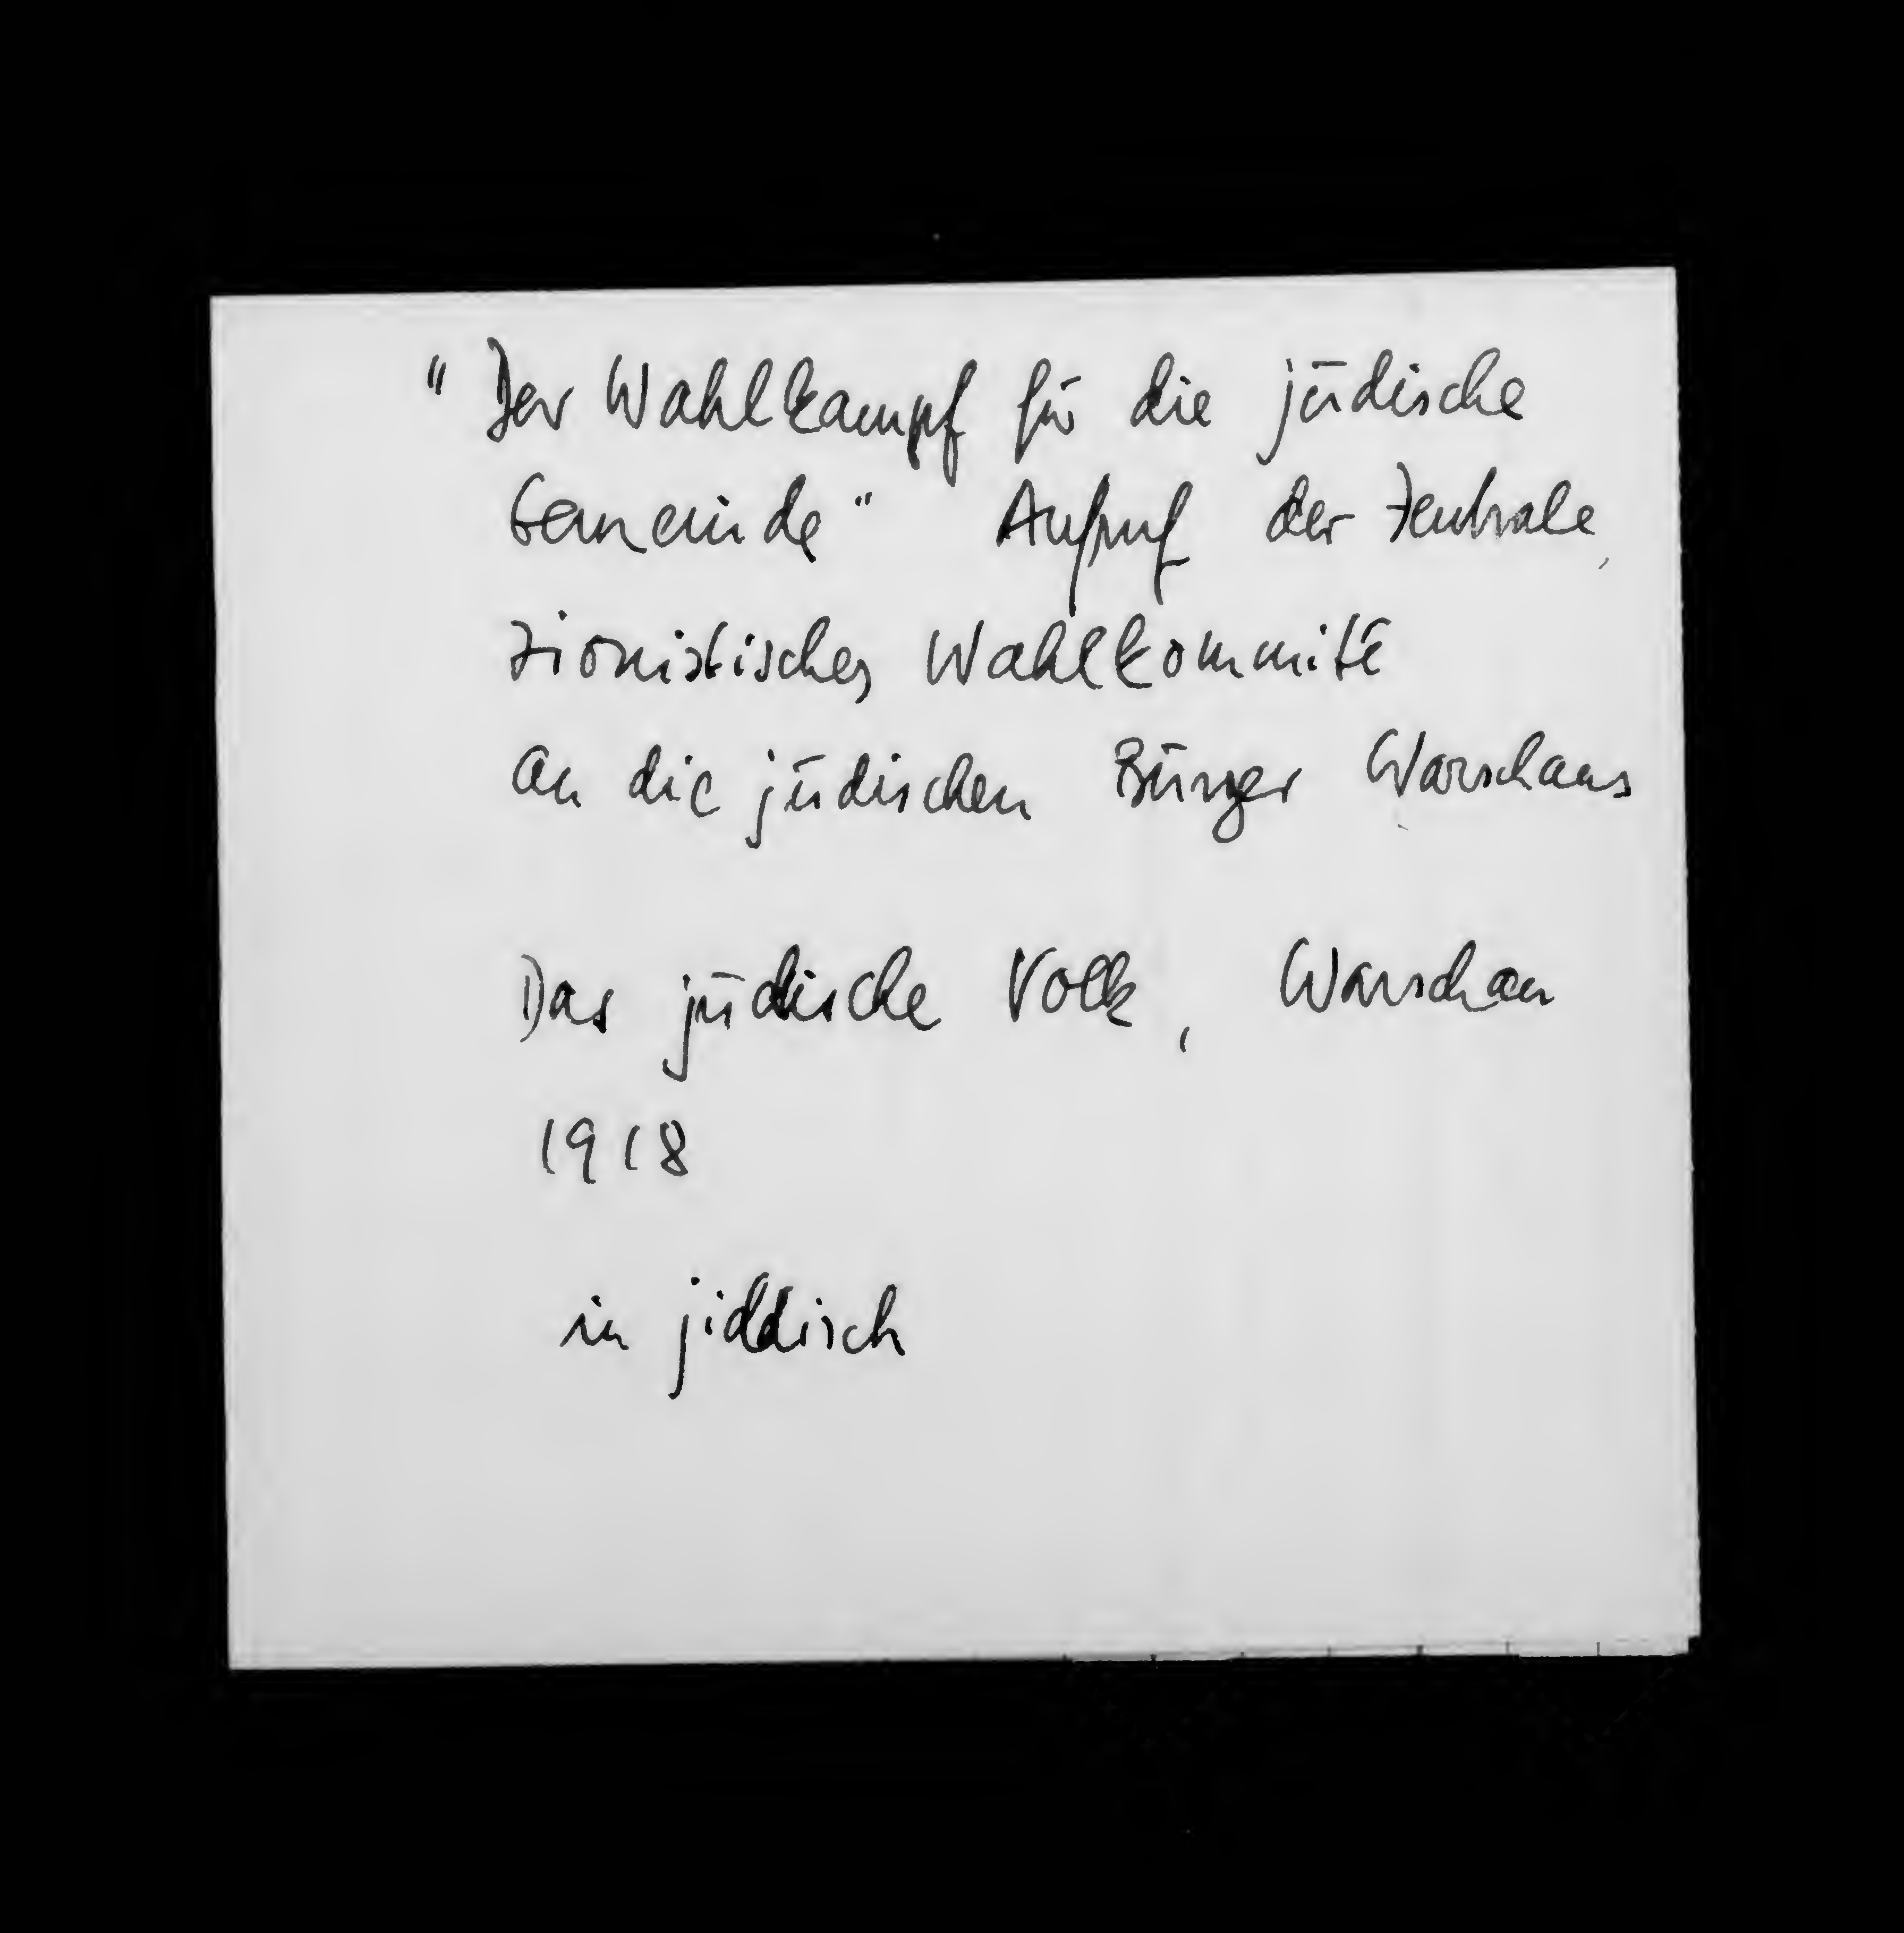 "Der Wahlkampf für die jüdische
Gemeinde" Aufruf der Zentrale,
zionistisches Wahlkommité
an die jüdischen Bürger Warschaus
Das jüdische Volk, Warschau
1918
in jiddisch